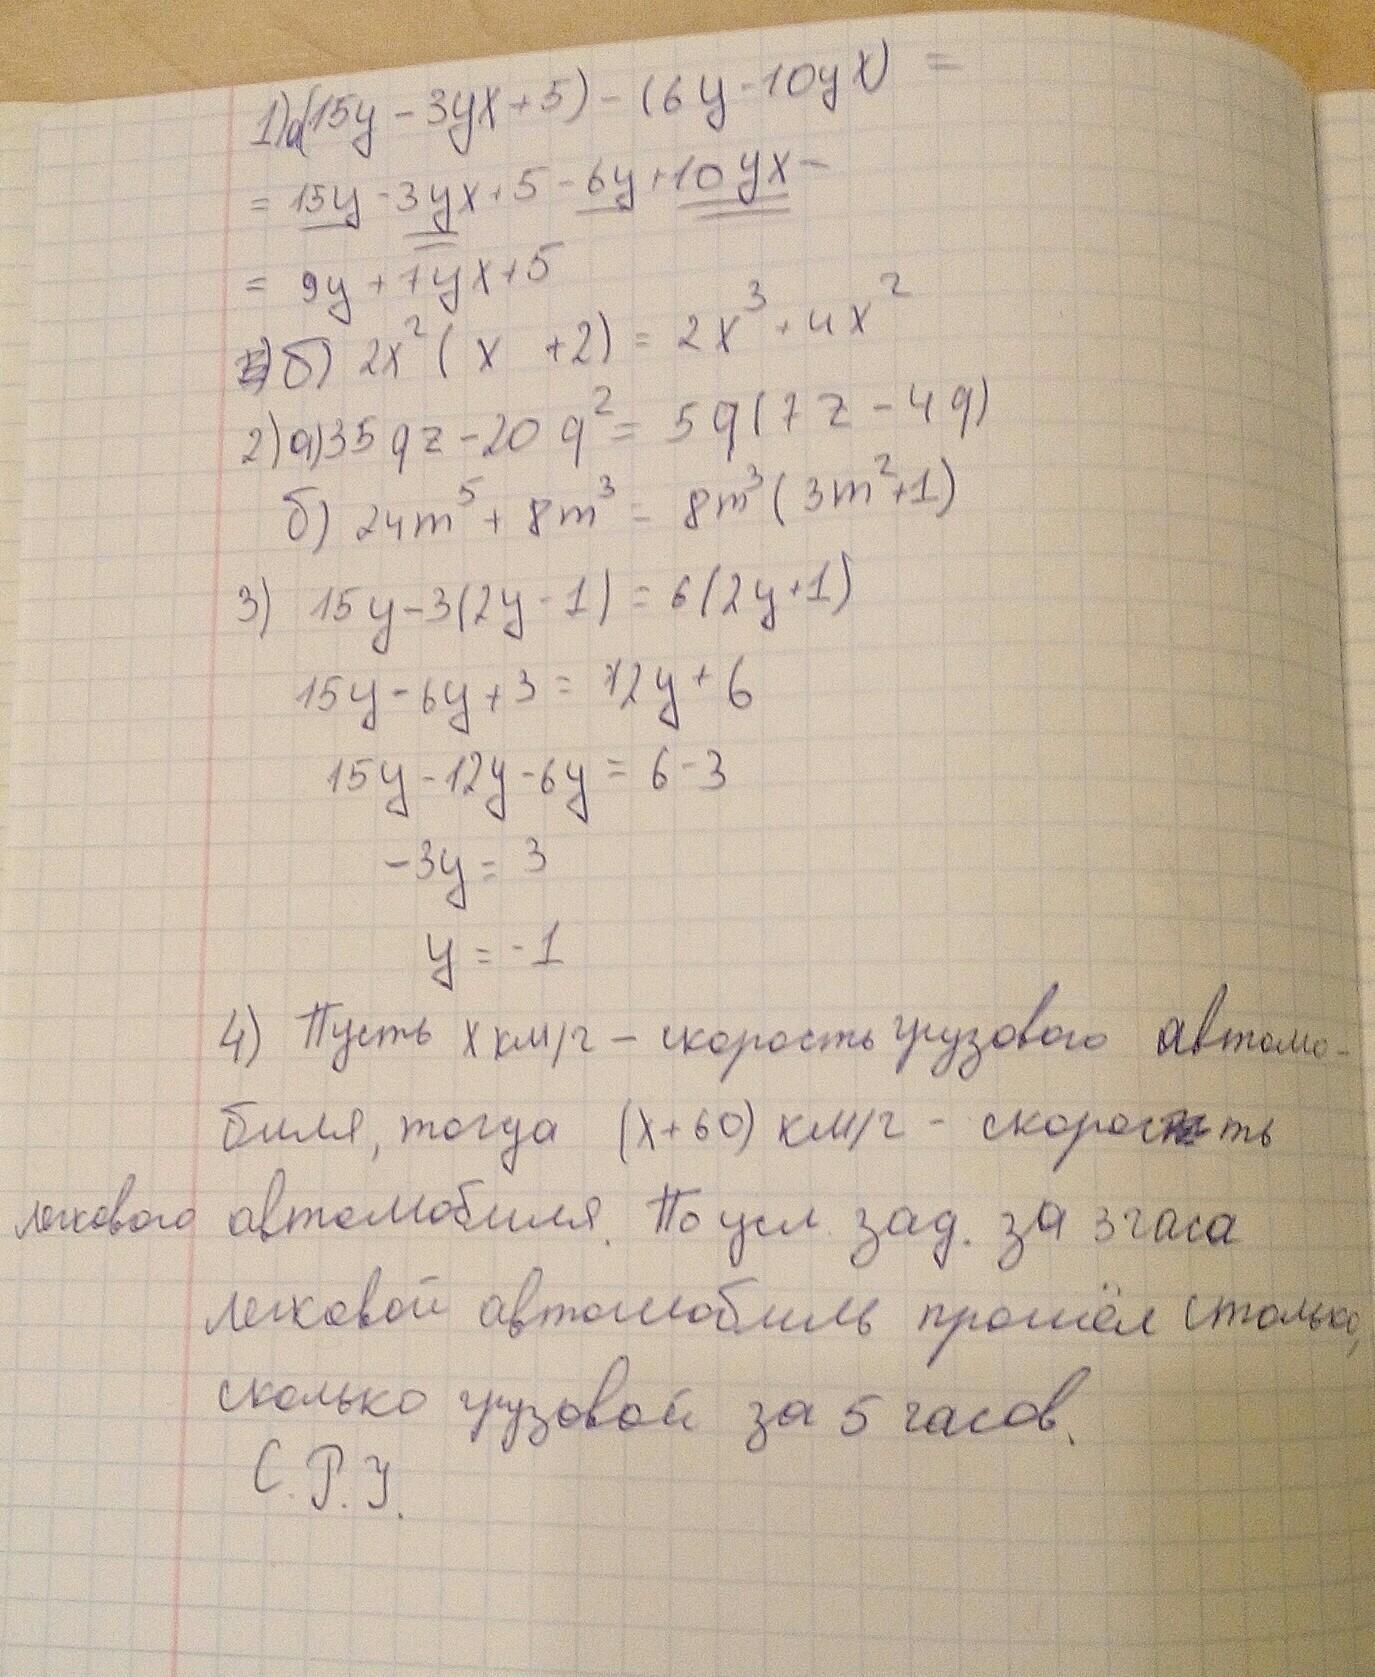 1)а)(15y - 3yx + 5) - (6y - 10yx) =
= 15y - 3yx + 5 - 6y + 10yx =
= 9y + 7yx + 5
б) 2x² ( x + 2) = 2x³ + 4x²
2) а) 35qz - 20q² = 5q(7z - 4q)
б) 24m⁵ + 8m³ = 8m³(3m²+1)
3) 15y - 3(2y - 1) = 6(2y + 1)
15y - 6y + 3 = 12y + 6
15y - 12y - 6y = 6 - 3
-3y = 3
y = -1
4) Пусть x км/ч - скорость грузового автомо-
биля, тогда (x+60) км/ч - скорость
легкового автомобиля. По усл. зад. за 3 часа
легковой автомобиль прошёл столько,
сколько грузовой за 5 часов.
С.Р.У.